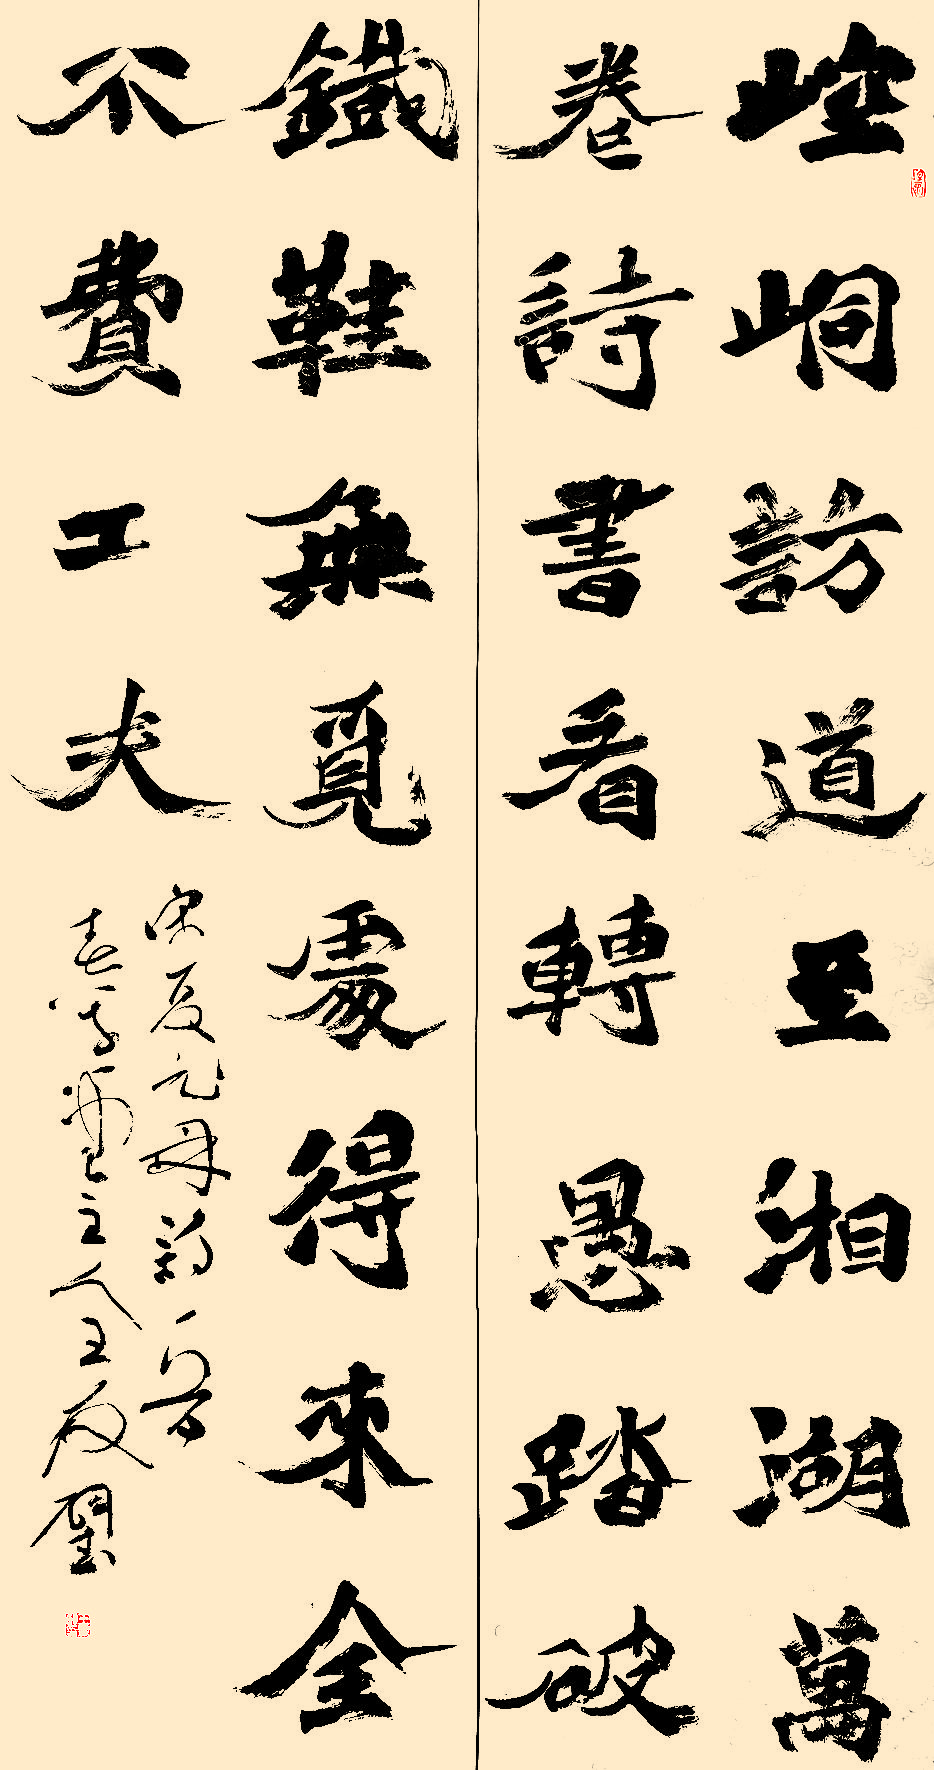 崆峒訪道至湘湖萬
卷詩書看轉愚踏破
鐵鞋無覓處得來全
不費工夫
宋夏元鼎詩一首
堂主人王